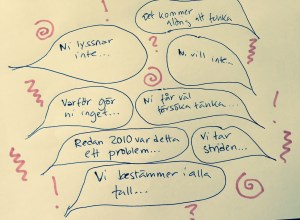 Det kommer
aldrig att funka
Ni lyssnar
inte...
Ni vill inte...
Varför gör
ni inget...
Ni får väl
försöka tänka...
Redan 2010 var detta
ett problem...
Vi tar
striden...
Vi bestämmer i alla
fall...